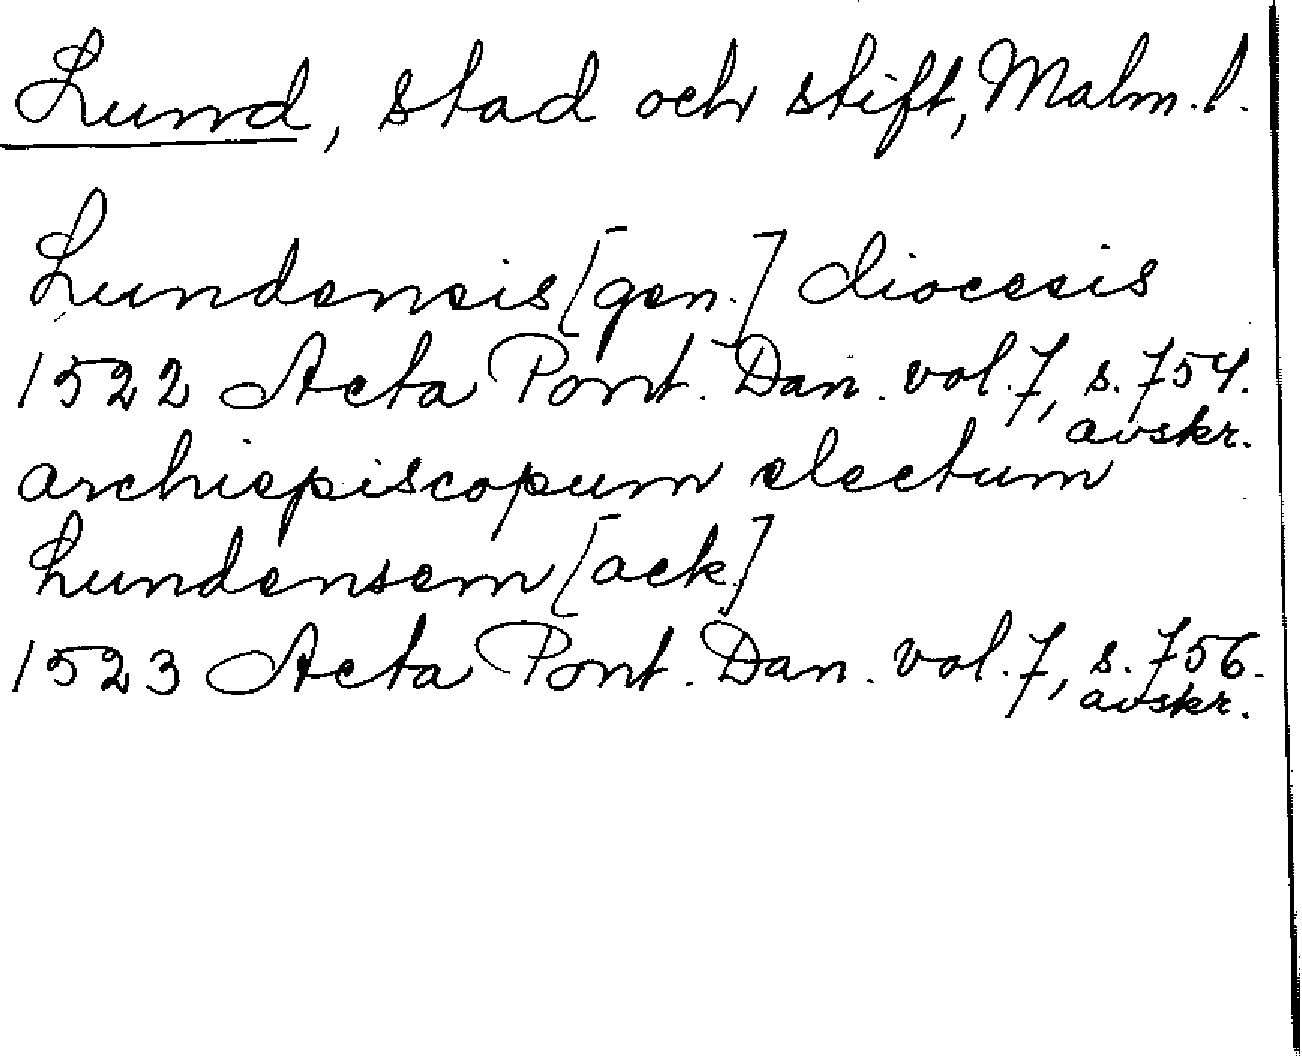 Lund, stad och stift, Malm. l.
Lundensis [gen.] diocesis
1522 Acta Pont. Dan. vol. 7, s. 754.
avskr.
archiepiscopum electum
Lundensem [ack]
1523 Acta Pont. Dan. vol. 7, s. 756.
avskr.